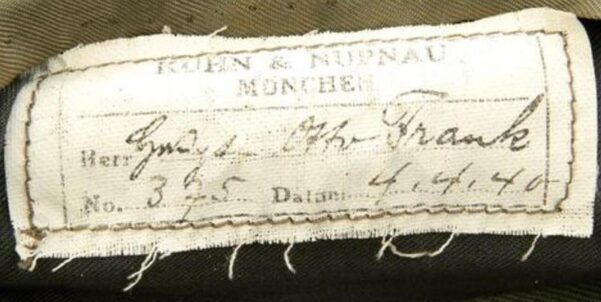 KOHN & NUPNAU
MÜNCHEN
Herr Otto Frank
No. 375 Datum: 4.4.40